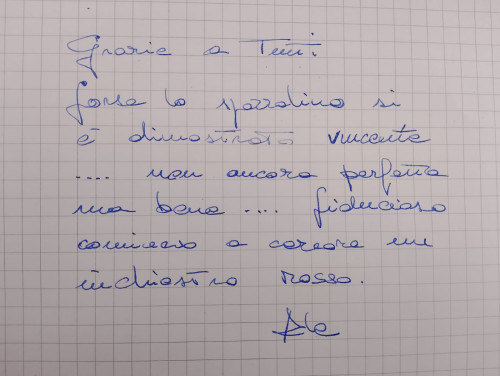 Grazie a Tutti.
forse lo spazzolino si
è dimostrato vincente
.... non ancora perfetta
ma bene .... fiducioso
comincio a cercare un
inchiostro rosso.
Ale